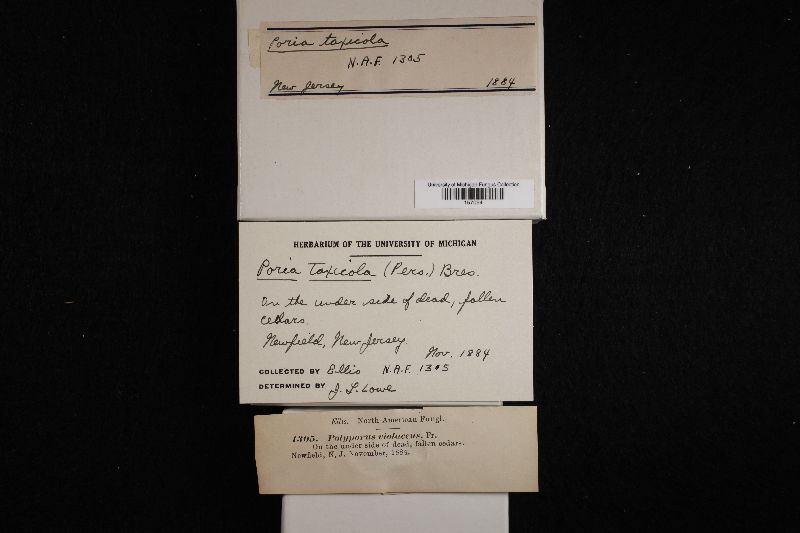 Poria taxicola
N.A.F. 1305
New Jersey 1884
University of Michigan Fungus Collection
HERBARIUM OF THE UNIVERSITY OF MICHIGAN
Poria taxicola (Pers.) Bres.
On the under side of dead, fallen
cedars
Newfield, New Jersey.
Nov. 1884
COLLECTED BY Ellis N.A.F. 1305
DETERMINED BY J. L. Lowe
Ellis. North American Fungi.
1305. Polyporus violaceus, Fr.
On the under side of dead, fallen cedars.
Newfield, N. J. November, 1884.